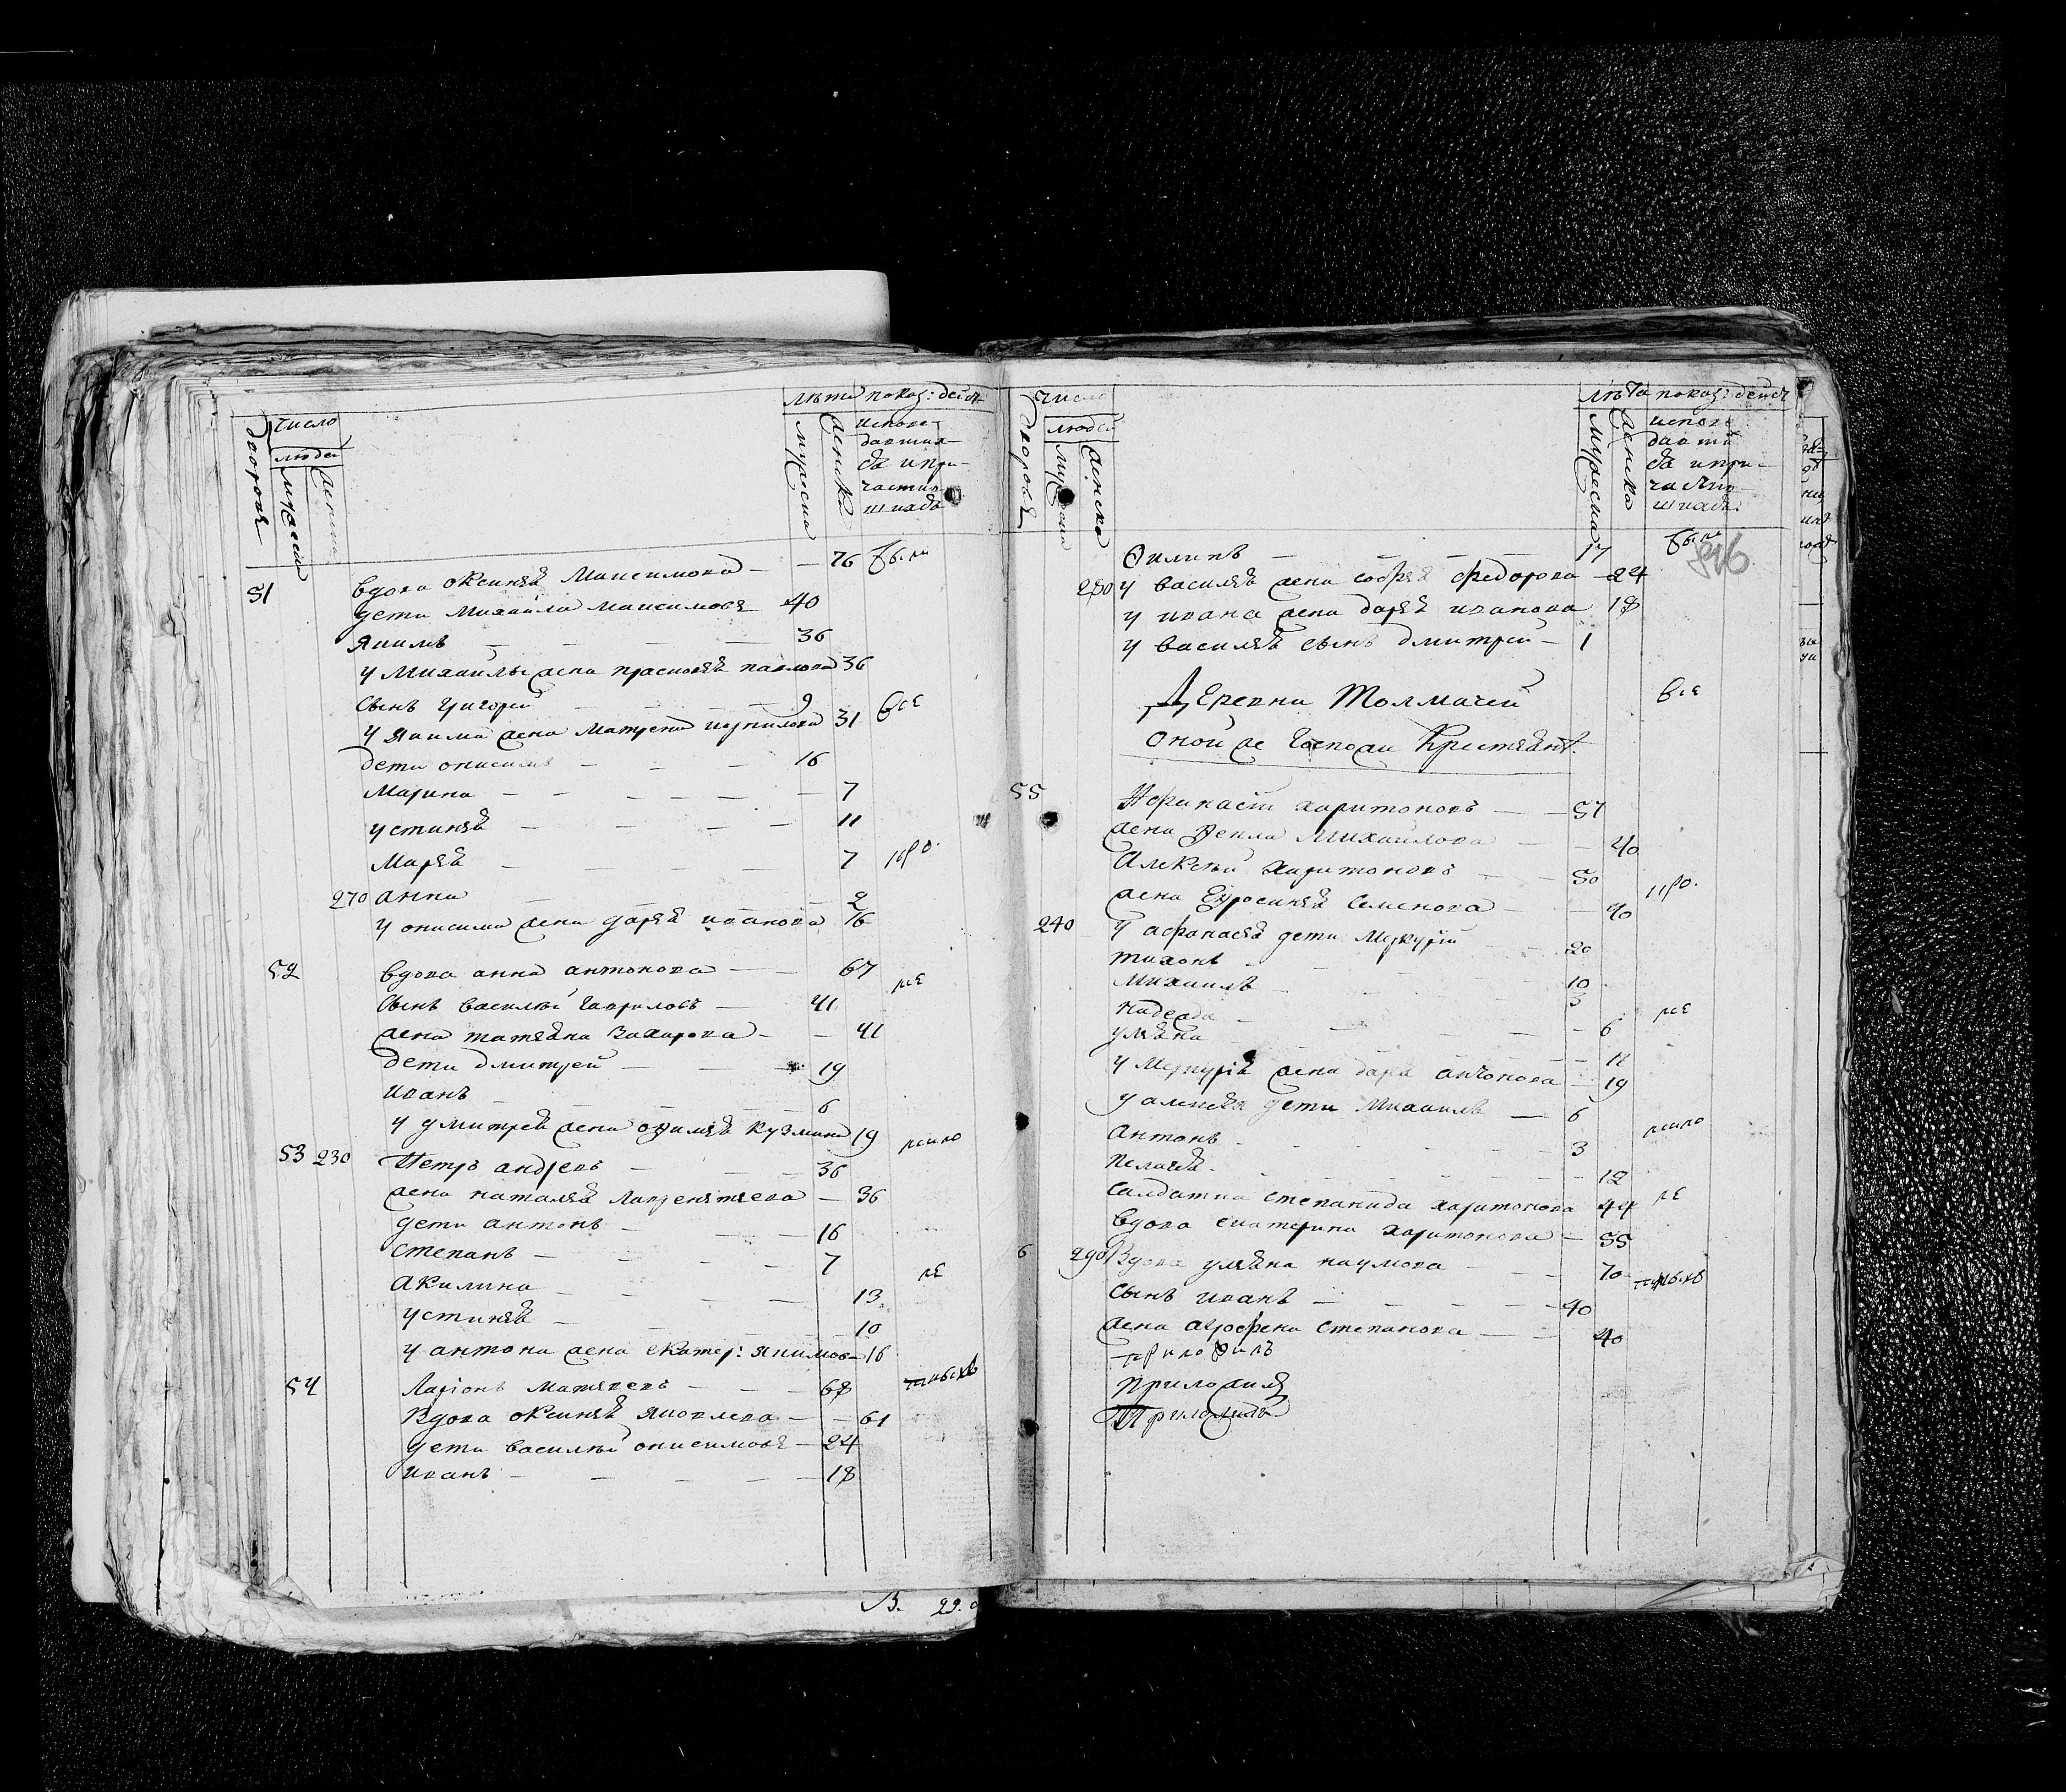 число
людей
дворовъ
мужеска
женска
лета показ: дейст
мужеска
женска
испове-
давших-
ся и при-
частив-
шихся
51 вдова Оксинья Максимова — — 76 были
дети Михаила Максимовы 40
Якимъ — — — 36
у Михайлы жена Прасковья Павлова 36
сынъ Григорей — — — 9 все
у Якима жена Матрена Корнилова 31
дети Онисимъ — — — 16
Марина — — — — — 7
Устинья — — — — 11
Марья — — — — 7
270 Анна — — — — 2
у Онисима жена Дарья Иванова 16
52 вдова Анна Антонова — — 67
сынъ Василей Гавриловъ — 41
жена Татьяна Захарова — — 41
дети Дмитрей — — — 19
Иванъ — — — — 6
у Дмитрея жена Офимья Кузмина 19
53 230 Петръ Андреевъ — — — 36
жена Наталья Лаврентьева — 36
дети Антонъ — — — 16
Степанъ — — — — 7
Акилина — — — — 13
Устинья — — — — 10
у Антона жена Екатер: Якимова 16
54 Ларіонъ Матвеевъ — — — 68
Вдова Оксинья Яковлева — — 61
дети Василей Онисимовы — 24
Иванъ — — — — — 18
В. 29.
число
людей
дворовъ
мужеска
женска
лета показ: дейст
мужеска
женска
испове
давши
ся и при-
частив
шихся
846
Филипъ — — — — 17 были
280 у Василья жена Софья Федорова — 24
у Ивана жена Дарья Иванова 18
у Василья сынъ Дмитрей — 1
Деревни Толмачей все
оной же Госпожи Крестьянъ.
55 Афанасей Харитоновъ — 57
жена Фекла Михайлова — — 40
Алексей Харитоновъ — — 50
жена Ефросинья Семенова — — 40
240 у Афанасья дети Меркурей — — 20
Тихонъ — — — — 10
Михаилъ — — — — 3
Надежда — — — — 6
Ульяна — — — — 11
у Меркурія жена Дарья Антонова — 19
у Алексея дети Михаилъ — 6
Антонъ — — — — 3
Пелагея — — — — 12
салдатка Степанида Харитонова 44
вдова Екатерина Харитонова — 55
6 290 Вдова Ульяна Наумова — — 70
сынъ Иванъ — — — — 40
жена Агрофена Степанова — — 40
приложилъ
приложилъ
Приложилъ